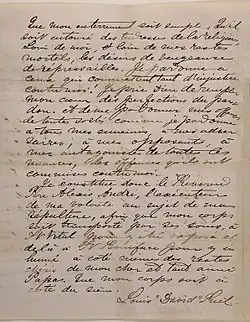 Que mon enterrement soit simple, qu'il
soit entouré des tendresses de la religion.
Loin de moi, et loin de mes restes
mortels, les désirs de vengeance
de représailles. Je pardonne à
ceux qui commettent tant d'injustice
contre moi. Je prie Dieu de remplir
mon cœur des perfections du par
don. Et de me pardonner mes offenses
de toutes sortes comme je pardonne
à tous mes ennemis, à mes adver
saires, à mes opposants, à
mes antagonistes de toutes les
nuances, les offenses qu'ils ont
commises contre moi.
Je constitue donc le Révérend
Père Alexis André, l'exécuteur
de ma volonté au sujet de ma
sépulture, afin que mon corps
soit transporté par ses soins, à
St Vital
delà à St Boniface pour y
inhumé à côté même des restes
chers de mon cher et tant aimé
Papa. Que mon corps soit à
côté du sien.
Louis "David" Riel.